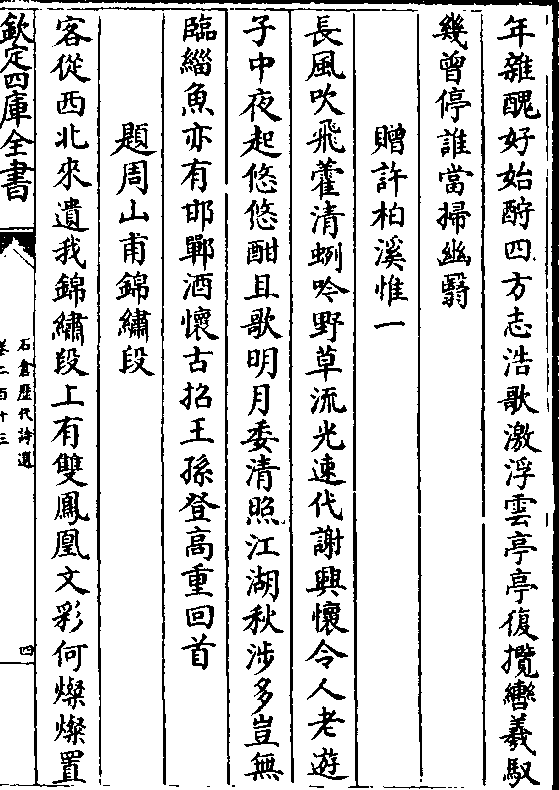 年雜醜好始酧四方志浩歌激浮雲亭亭復攬轡羲馭
幾曾停誰當掃幽翳
贈許柏溪惟一
長風吹飛藿清蛚吟野草流光速代謝興懷令人老遊
子中夜起悠悠酣且歌明月委清照江湖秋涉多豈無
臨緇魚亦有邯鄲酒懷古招王孫登高重回首
題周山甫錦繡段
客從西北來遺我錦繡段上有雙鳳凰文彩何燦燦置
欽定四庫全書
石倉歷代詩選
卷二百十三
四